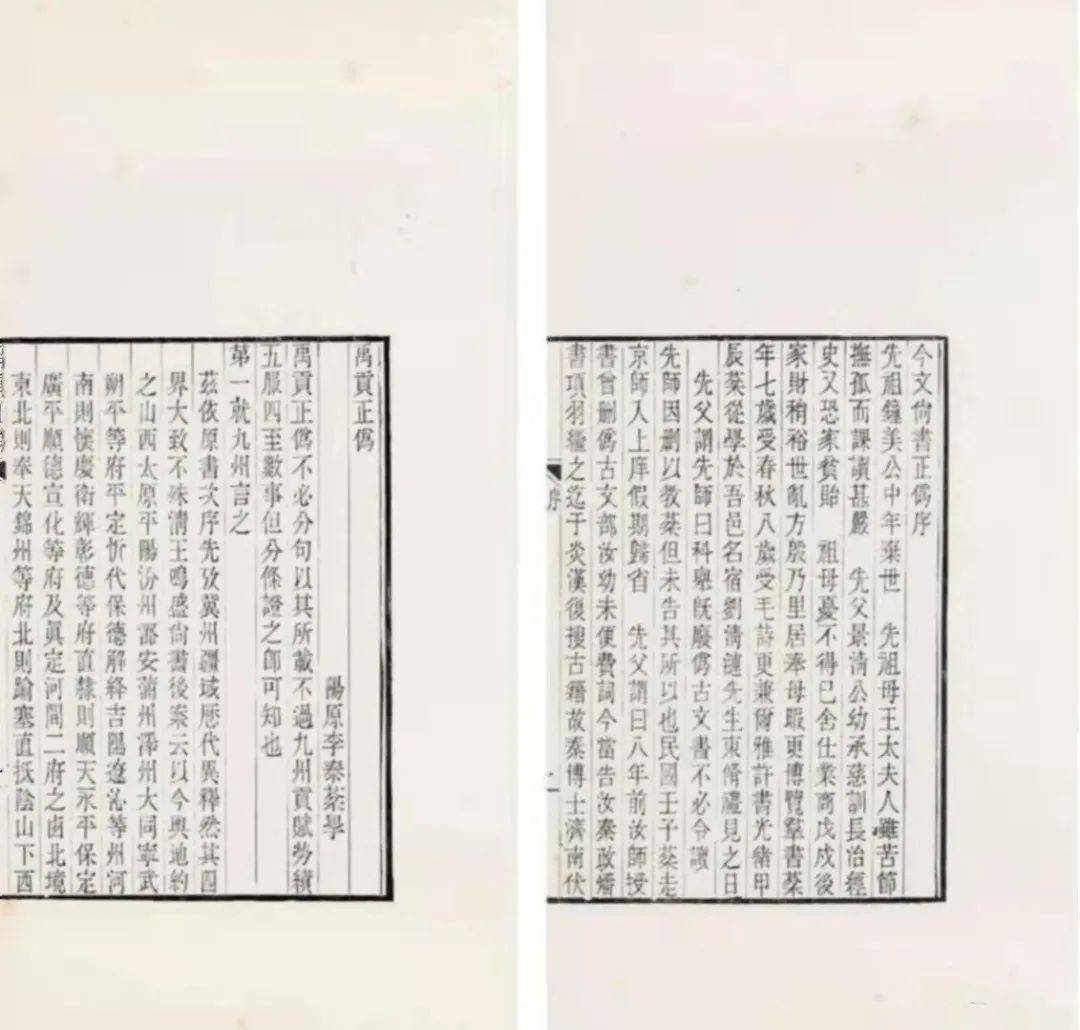 今文尚書正僞序
先祖鐘美公中年棄世　先祖母王太夫人雖苦節
撫孤而課讀甚嚴　先父景清公幼承慈訓長治經
史又恐家貧貽　祖母憂不得已舍仕業商戊戌後
家財稍裕世亂方殷乃里居奉母暇更博覽羣書棻
年七歲受春秋八歲受毛詩更兼爾雅許書光緒甲
辰棻從學於吾邑名宿劉清漣先生束脩禮見之日
先父謂先師曰科舉旣廢僞古文書不必令讀
先師因删以教棻但未告其所以也民國壬子棻走
京師入上庠假期歸省　先父謂曰八年前汝師授
書曾删僞古文部汝幼未便費詞今當告汝秦政燔
書項羽繼之迄于炎漢復搜古籍故秦博士濟南伏
序
一
禹貢正僞
陽原李泰棻學
禹貢正僞不必分句以其所載不過九州貢賦勞績
五服四至數事但分條證之卽可知也
第一就九州言之
茲依原書次序先攷冀州疆域歷代異釋然其四
界大致不殊清王鳴盛尚書後案云以今輿地約
之山西太原平陽汾州潞安蒲州澤州大同寧武
朔平等府平定忻代保德解絳吉隰遼沁等州河
南則懷慶衛輝彰德等府直隸則順天永平保定
廣平順德宣化等府及眞定河間二府之西北境
東北則奉天錦州等府北則踰塞直抵陰山下西